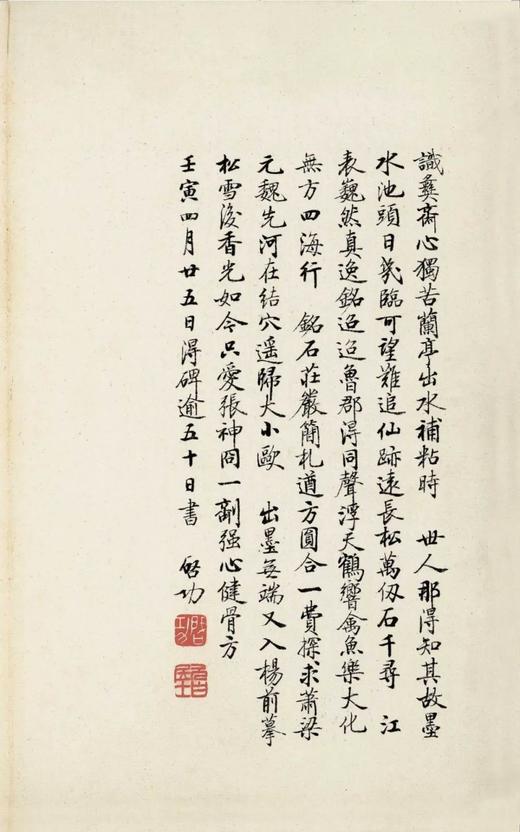 識彝齋心獨苦蘭亭出水補粘時 世人那得知其故墨
水池頭日幾臨可望難追仙跡遠長松萬仞石千尋 江
表巍然真逸銘迢迢魯郡得同聲浮天鶴響禽魚樂大化
無方四海行 銘石莊嚴簡札遒方圓合一費探求蕭梁
元魏先河在結穴遥歸大小歐 出墨無端又入楊前摹
松雪後香光如今只愛張神冏一劑强心健骨方
壬寅四月廿五日得碑逾五十日書 啓功
啓功